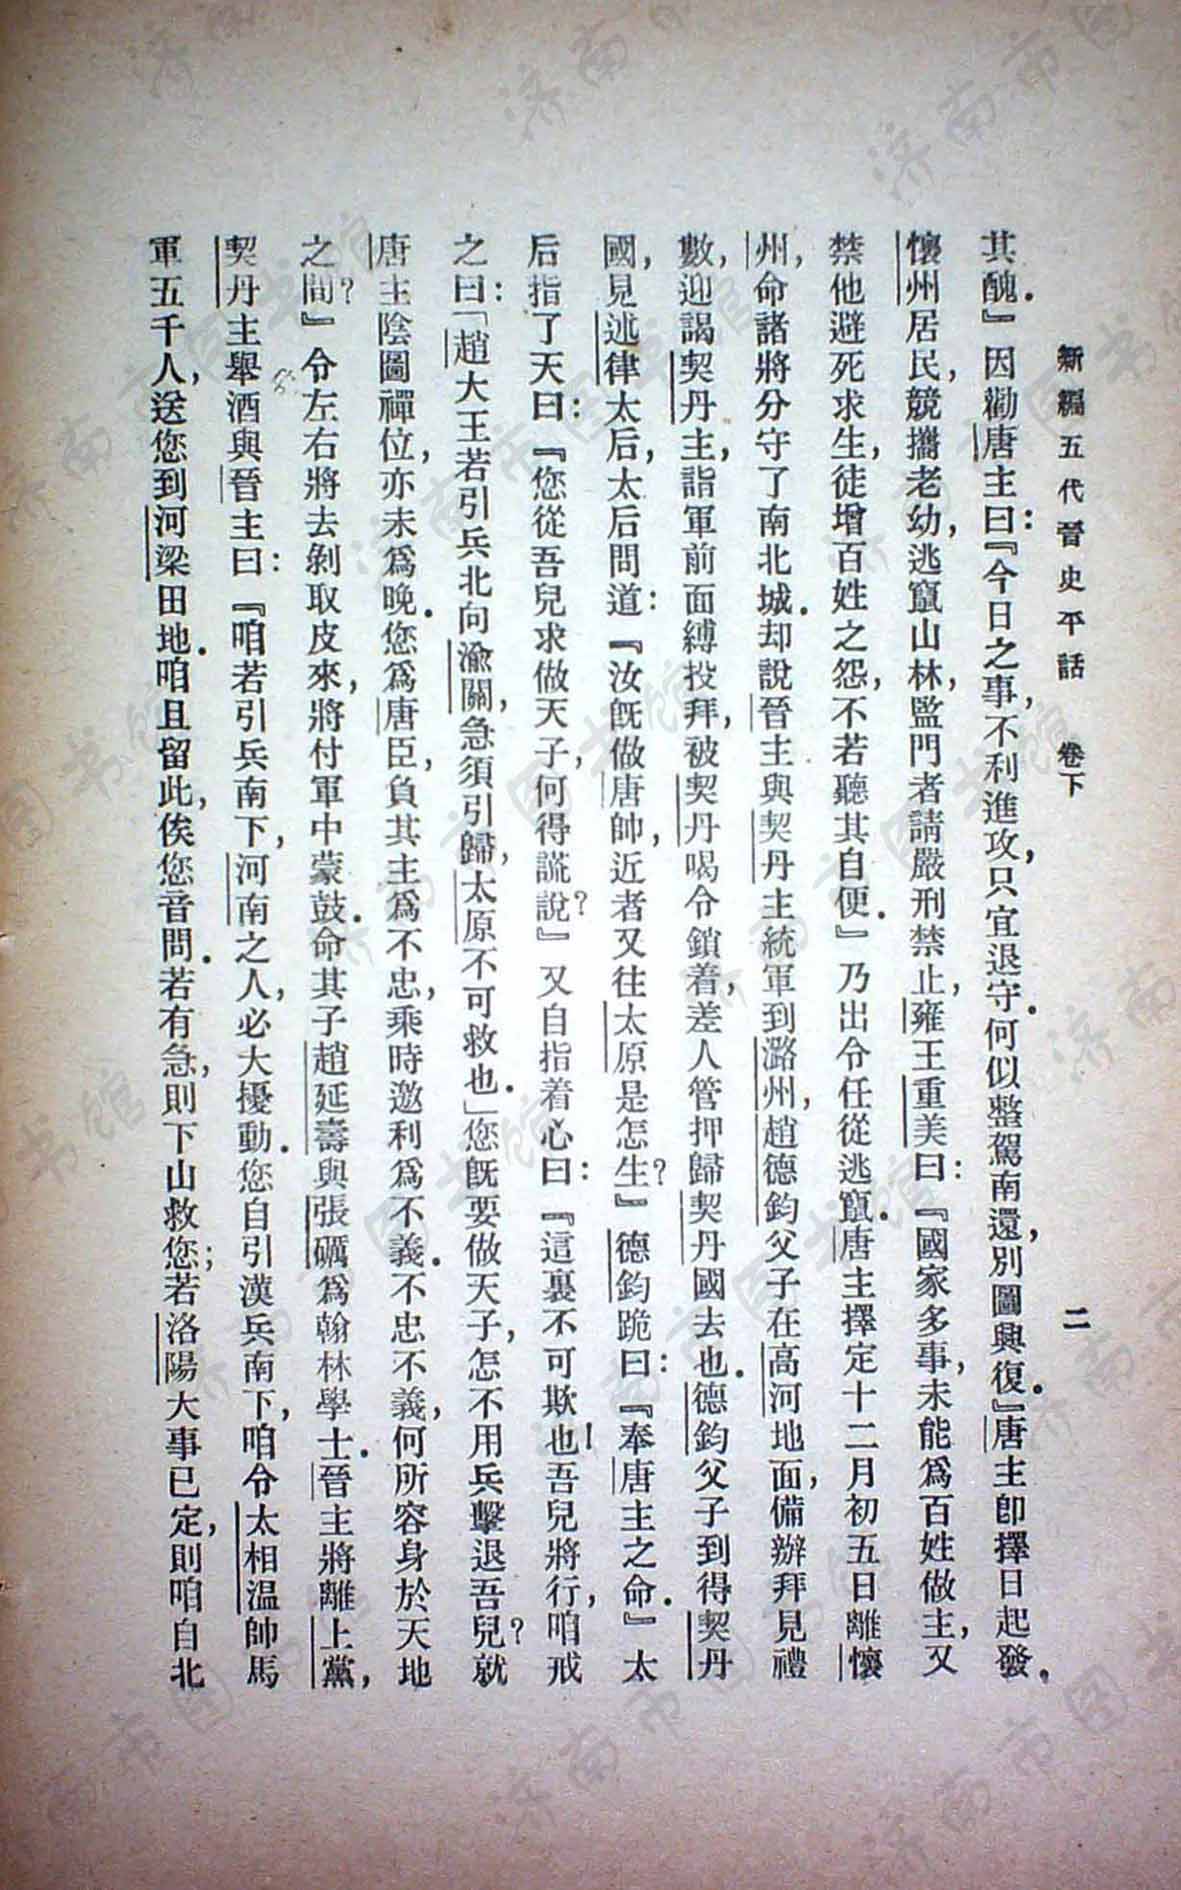 新編五代晉史平話　卷下　二
其醜.』因勸唐主曰:『今日之事,不利進攻,只宜退守.何似整駕南還,別圖興復.』唐主即擇日起發.
懷州居民,競攜老幼,逃竄山林,監門者請嚴刑禁止,雍王重美曰:『國家多事,未能爲百姓做主,又
禁他避死求生,徒增百姓之怨,不若聽其自便.』乃出令任從逃竄.唐主擇定十二月初五日離懷
州,命諸將分守了南北城.却說晉主與契丹主統軍到潞州,趙德鈞父子在高河地面,備辦拜見禮
數,迎謁契丹主,詣軍前面縛投拜,被契丹喝令鎖着,差人管押歸契丹國去也.德鈞父子到得契丹
國,見述律太后,太后問道:『汝旣做唐帥,近者又往太原是怎生?』德鈞跪曰:『奉唐主之命.』太
后指了天曰:『您從吾兒求做天子,何得謊說?』又自指着心曰:『這裏不可欺也!吾兒將行,咱戒
之曰:「趙大王若引兵北向渝關,急須引歸,太原不可救也.」您旣要做天子,怎不用兵擊退吾兒?就
唐主陰圖禪位,亦未爲晚.您爲唐臣,負其主爲不忠,乘時邀利爲不義.不忠不義,何所容身於天地
之間?』令左右將去剝取皮來,將付軍中蒙鼓.命其子趙延壽與張礪爲翰林學士.晉主將離上黨,
契丹主舉酒與晉主曰:『咱若引兵南下,河南之人,必大擾動.您自引漢兵南下,咱令太相温帥馬
軍五千人,送您到河梁田地.咱且留此,俟您音問.若有急,則下山救您;若洛陽大事已定,則咱自北